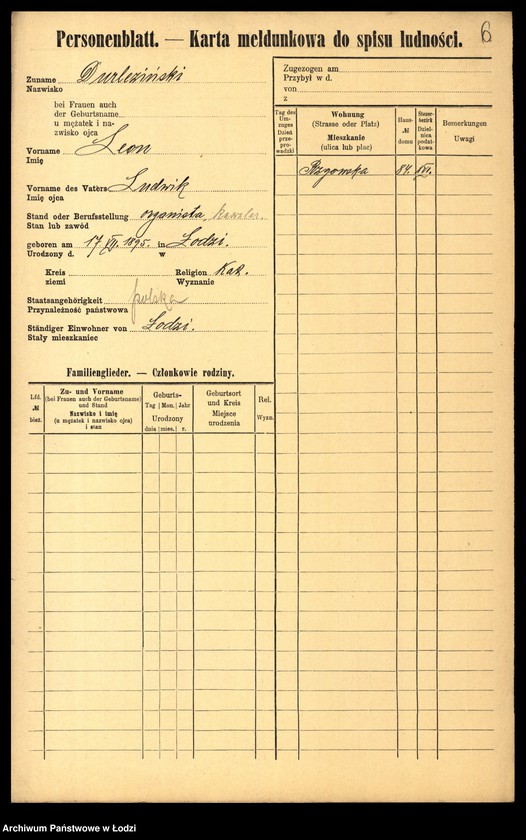 6
Personenblatt. — Karta meldunkowa do spisu ludności.
Zuname Durleziński
Nazwisko
bei Frauen auch
der Geburtsname
u mężatek i na-
zwisko ojca
Vorname Leon
Imię
Vorname des Vaters Ludwik
Imię ojca
Stand oder Berufsstellung organista, kawaler.
Stan lub zawód
geboren am 17 VII 1895. in Łodzi.
Urodzony d. w
Kreis Religion Kat.
ziemi Wyznanie
Staatsangehörigkeit polska
Przynależność państwowa
Ständiger Einwohner von Łodzi.
Stały mieszkaniec
Zugezogen am
Przybył w d.
von
z
Tag des Um-zuges Dzień prze-prowadzki
Wohnung
(Strasse oder Platz)
Mieszkanie
(ulica lub plac)
Haus-
№
domu
Steuer-
bezirk
Dziel-
nica
podat-
kowa
Bemerkungen
Uwagi
Rzgowska 84. XVI.
Familienglieder. — Członkowie rodziny.
Lfd.
№
bież.
Zu- und Vorname
(bei Frauen auch der Geburtsname)
und Stand
Nazwisko i imię
(u mężatek i nazwisko ojca)
i stan
Geburts-
Tag Mon. Jahr
Urodzony
dnia mies. r.
Geburtsort
und Kreis
Miejsce
urodzenia
Rel.
Wyzn.
Archiwum Państwowe w Łodzi